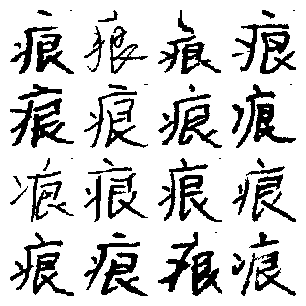 痕痕痕痕
痕痕痕痕
痕痕痕痕
痕痕痕痕